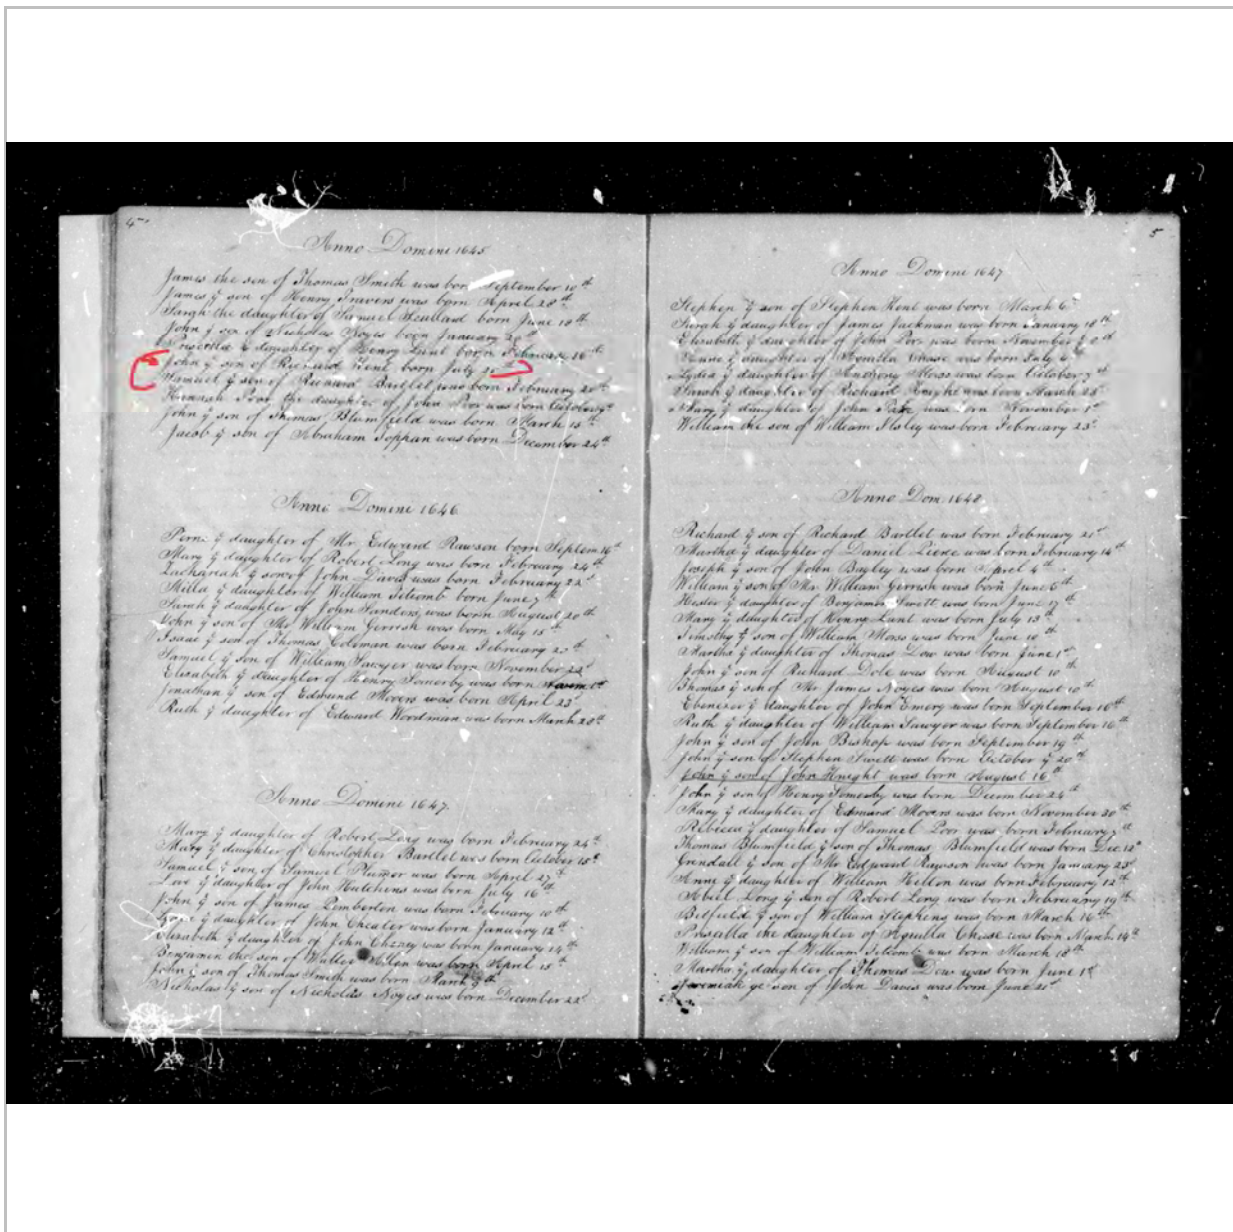 4
Anno Domini 1645
James the son of Thomas Smith was born September 10th
James ÿ son of Henry Travers was born April 28th
Sarah the daughter of Samuel Scullard born June 18th
John ÿ son of Nicholas Noyes born January 20th
Priscilla ÿ daughter of Henry Lunt born February 16th
John ÿ son of Richard Kent born July
Samuel ÿ son of Richard Bartlet was born February 20th
Hannah Poor the daughter of John Poor was born October
John ÿ son of Thomas Blumfield was born March 15th
Jacob ÿ son of Abraham Toppan was born December 24th
Anno Domini 1646
ÿ daughter of Mr Edward Rawson born Septem 16th
Mary ÿ daughter of Robert Long was born February 24th
Zachariah ÿ son of John Davis was born February 22d
Milla ÿ daughter of William Titcomb born June 7th
Sarah ÿ daughter of John Sanders was born August 20th
John ÿ son of Mr William Gerrish was born May 15th
Isaac ÿ son of Thomas Coleman was born February
Samuel ÿ son of William Sawyer was born November 22d
Elizabeth ÿ daughter of Henry Somerby was born
Jonathan ÿ son of Edmund Moores was born April 23d
Ruth ÿ daughter of Edward Woodman was born March 28th
Anno Domini 1647.
Mary ÿ daughter of Robert Long was born February 24th
Mary ÿ daughter of Christopher Bartlet was born October 15th
Samuel ÿ son of Samuel Plumer was born April 27th
Love ÿ daughter of John Hutchens was born July 16th
John ÿ son of James Pemberton was born February 10th
ÿ daughter of John Cheater was born January 12th
Elizabeth ÿ daughter of John Cheney was born January 14th
Benjamin the son of Walter Allen was born April 15th
John ÿ son of Thomas Smith was born March 9th
Nicholas ÿ son of Nicholas Noyes was born December 22d
5
Anno Domini 1647
Stephen ÿ son of Stephen Kent was born March 6
Sarah ÿ daughter of James Jackman was born January 18th
Elizabeth ÿ daughter of John Poor was born November
ÿ daughter of Aquilla Chase was born July 6
Lydia ÿ daughter of Anthony Morss was born October 7th
Sarah ÿ daughter of Richard Knight was born March 23d
Mary ÿ daughter of John was born November 1st
William the son of William Ilsley was born February 23d
Anno Dom. 1648
Richard ÿ son of Richard Bartlet was born February 21st
Martha ÿ daughter of Daniel Pierce was born February 14th
Joseph ÿ son of John Bayley was born April 4th
William ÿ son of Mr William Gerrish was born June 6th
Hester ÿ daughter of Benjamin Swett was born June 17th
Mary ÿ daughter of Henry Lunt was born July 13th
Timothy ÿ son of William Morss was born June 10th
Martha ÿ daughter of Thomas Dow was born June 1st
John ÿ son of Richard Dole was born August 10th
Thomas ÿ son of Mr James Noyes was born August 10th
Ebenezer ÿ daughter of John Emery was born September 16th
Ruth ÿ daughter of William Sawyer was born September 16th
John ÿ son of John Bishop was born September 19th
John ÿ son of Stephen Swett was born October ÿ 20th
John ÿ son of John Knight was born August 16th
John ÿ son of Henry Somersby was born December 24th
Mary ÿ daughter of Edmund Moores was born November 30th
Rebecca ÿ daughter of Samuel Poor was born February 7th
Thomas Blumfield ÿ son of Thomas Blumfield was born Dec. 12th
Grindall ÿ son of Mr Edward Rawson was born January 23d
Anne ÿ daughter of William Hilton was born February 12th
Abiel Long ÿ son of Robert Long was born February 19th
Bitfield ÿ son of William Stephens was born March 16th
Priscilla the daughter of Aquilla Chase was born March 14th
William ÿ son of William Titcomb was born March 18th
Martha ÿ daughter of Thomas Dow was born June 1st
Jeremiah ye son of John Davis was born June 21st